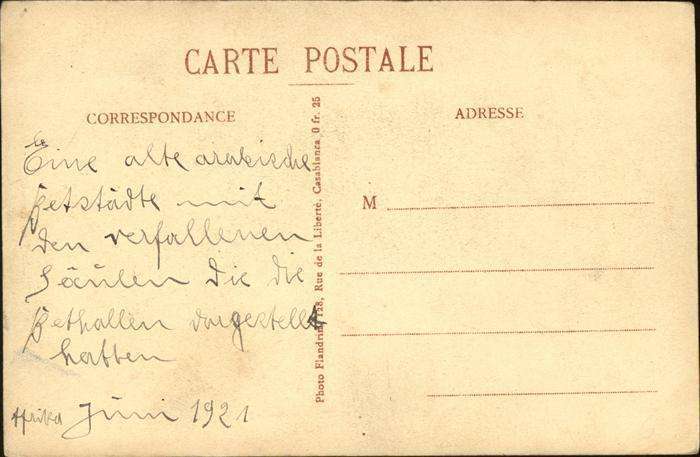 CARTE POSTALE
CORRESPONDANCE
ADRESSE
Eine alte arabische
Betstädte mit
den verfallenen
Säulen die die
Bethallen dargestellt
hatten
Afrika Juni 1921
M
Photo Flandrin, 128, Rue de la Liberté, Casablanca 0 fr. 25